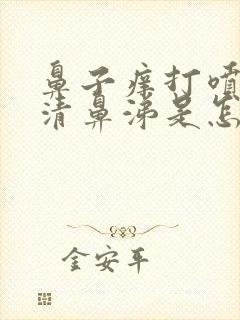 鼻子痒打喷
清鼻涕是怎
金安平